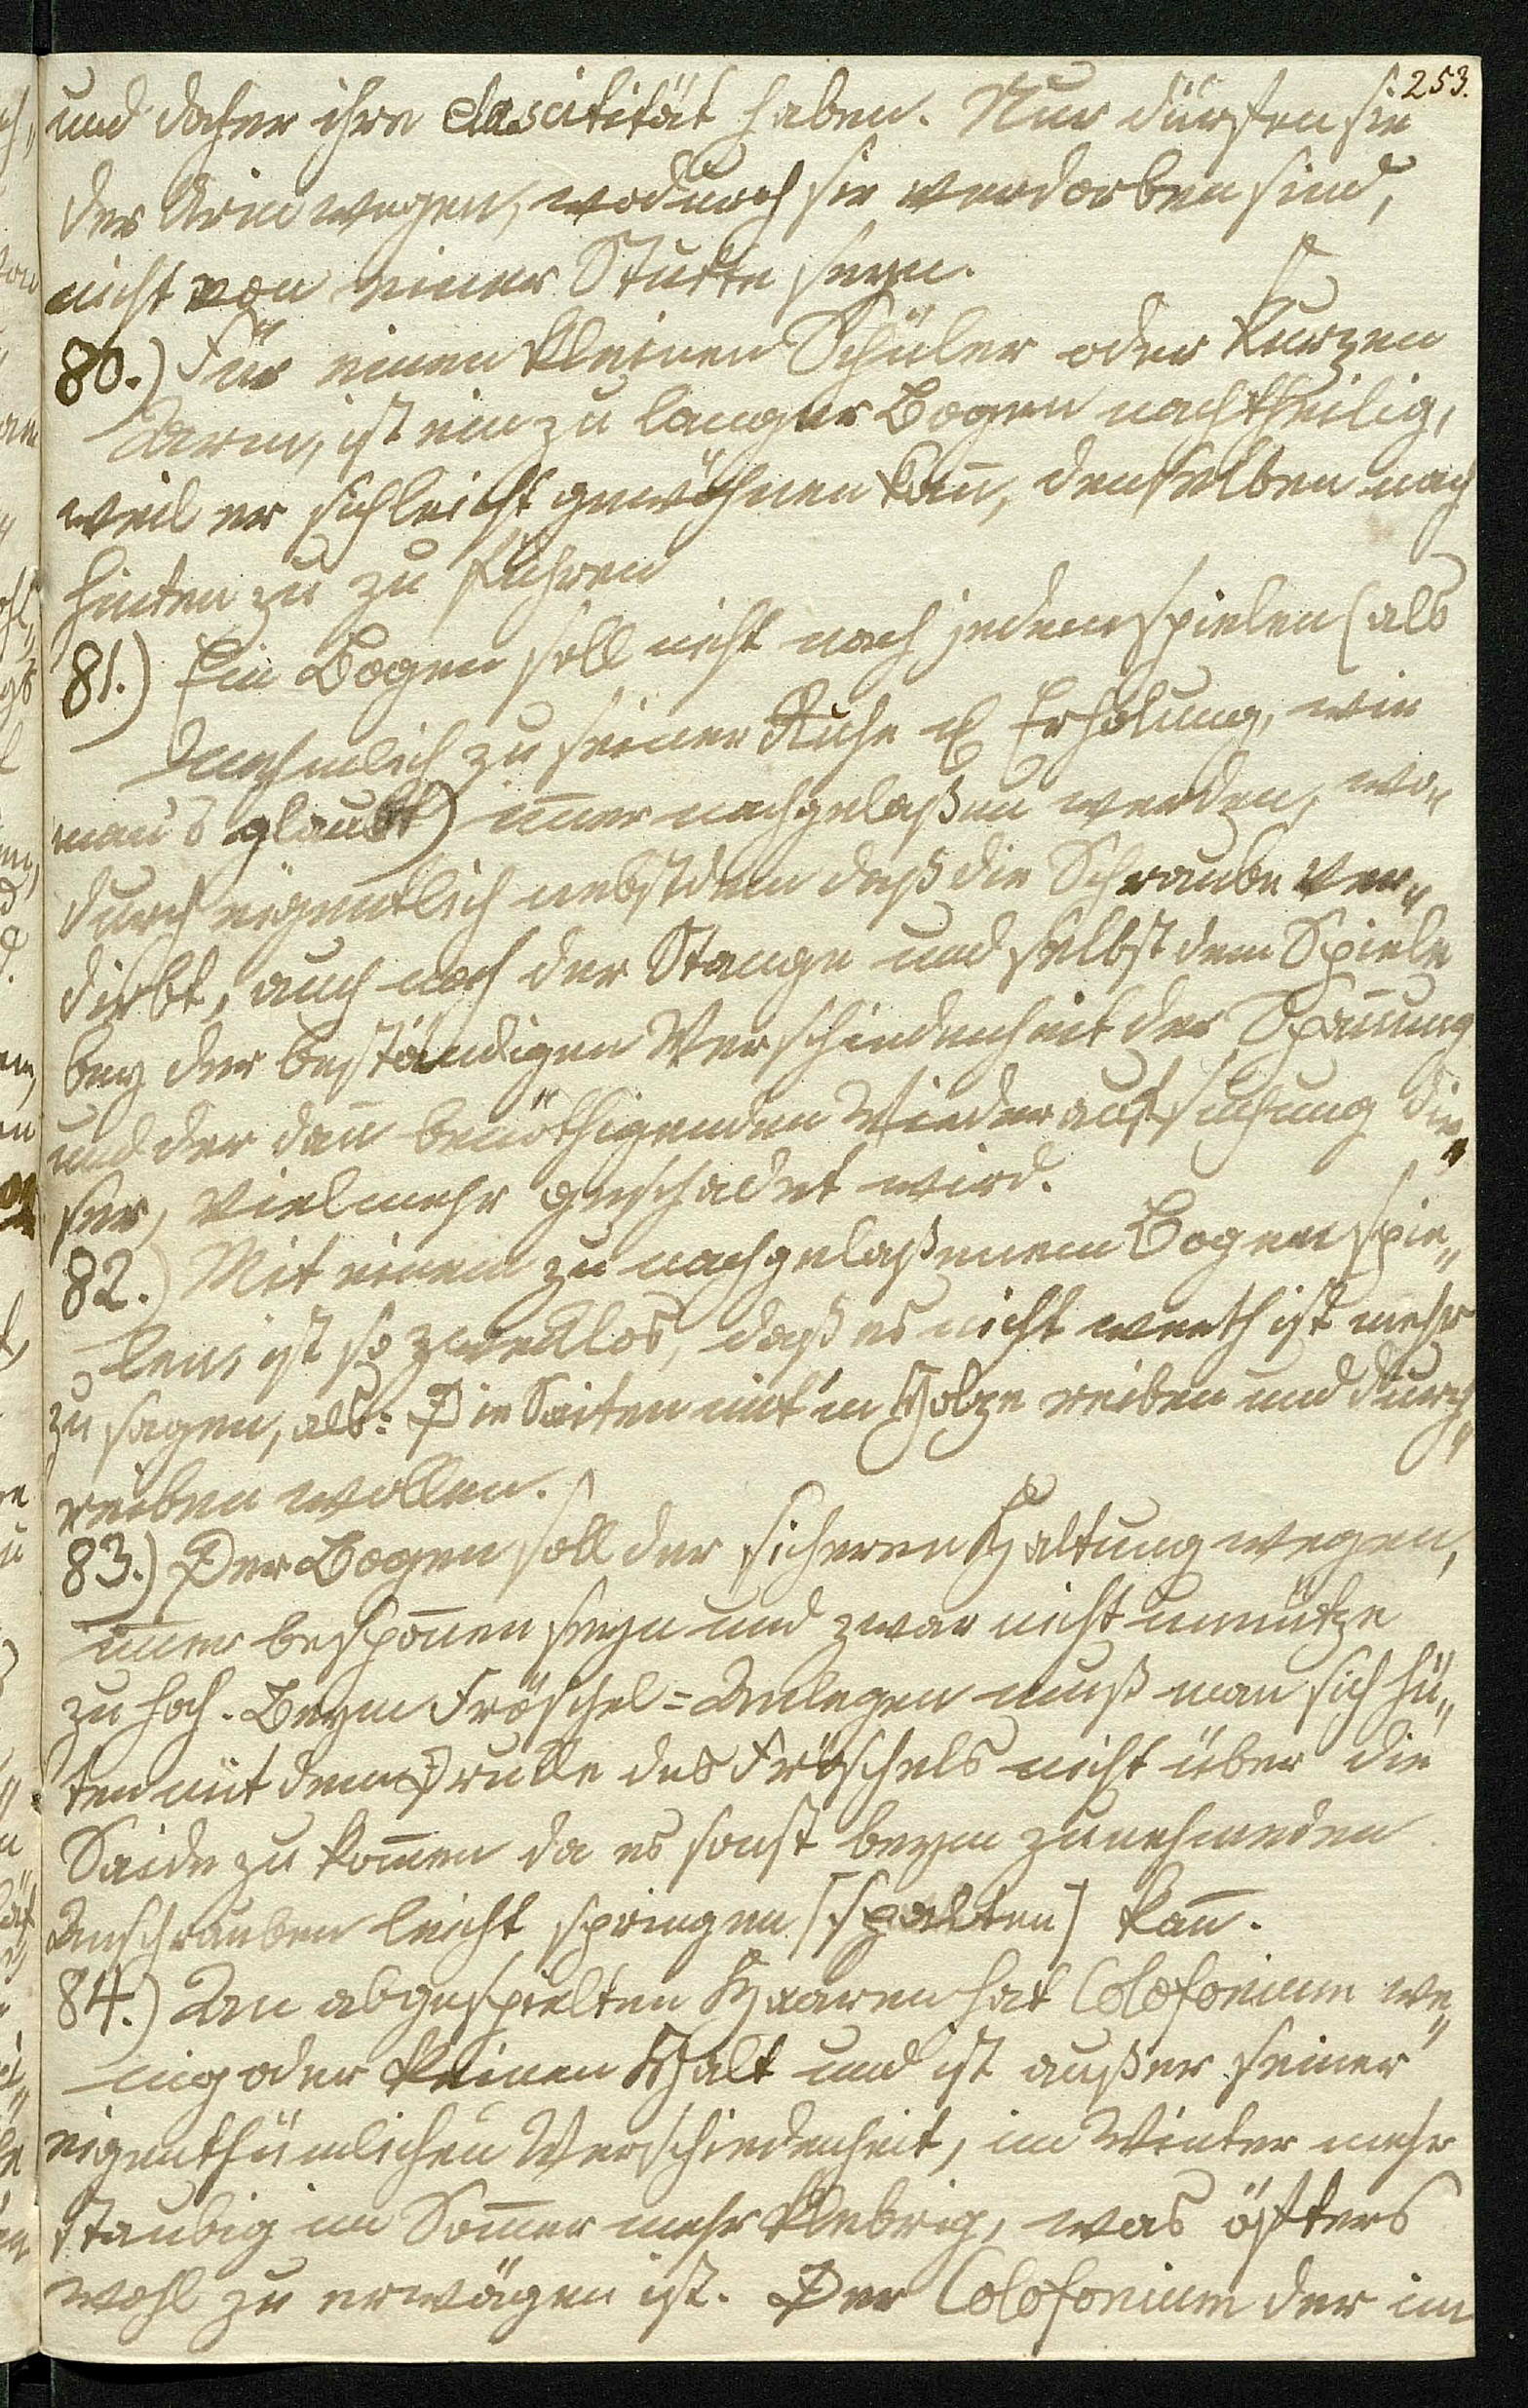 253.
und daher ihre elascitität haben. Nur dürfen sie
des Urin wegen, wodurch sie verdorben sind,
nicht von einer Stutte seyn.
80.) Für einen kleinen Schüler oder kurzen
Arm, ist ein zu langer Bogen nachtheilig,
weil er sich leicht gewöhnen kan̄, denselben nach
hinten zu zu führen
81.) Ein Bogen soll nicht nach jedem spielen (als
nehmlich zu seiner Ruhe & Erholung, wie
man's glaubt) im̄er nachgelaßen werden, wo„
durch eigentlich nebstdem daß die Schraube ver„
dirbt, auch noch der Stange und selbst dem Spiele
bey der beständigen Verschiedenheit der Span̄ung
und der dan̄ benöthigenden Wiederaufsuchung die„
ser, vielmehr geschadet wird.
82.) Mit einem zu nachgelaßenem Bogen spie„
len, ist so zwecklos, daß es nicht werth ist mehr
zu sagen, als: Die Saiten mit'm Holze reiben und durch„
reiben wollen.
83.) Der Bogen soll der sicheren Haltung wegen,
im̄er bespon̄en seyn und zwar nicht unnütze
zu hoch. Beym Fröschel=Anlegen muß man sich hü„
ten mit dem Drucke des Fröschels nicht über die
Saide zu kom̄en da es sonst beym zunehmeden
Anschrauben leicht springen [spalten] kan̄.
84.) An abgespielten Haaren hat Colofonium we„
nig oder keinen Halt und ist außer seiner
eigenthümlichen Verschiedenheit, im Winter mehr
staubig im Som̄er mehr klebrig, was öfters
wohl zu erwägen ist. Der Colofonium der im